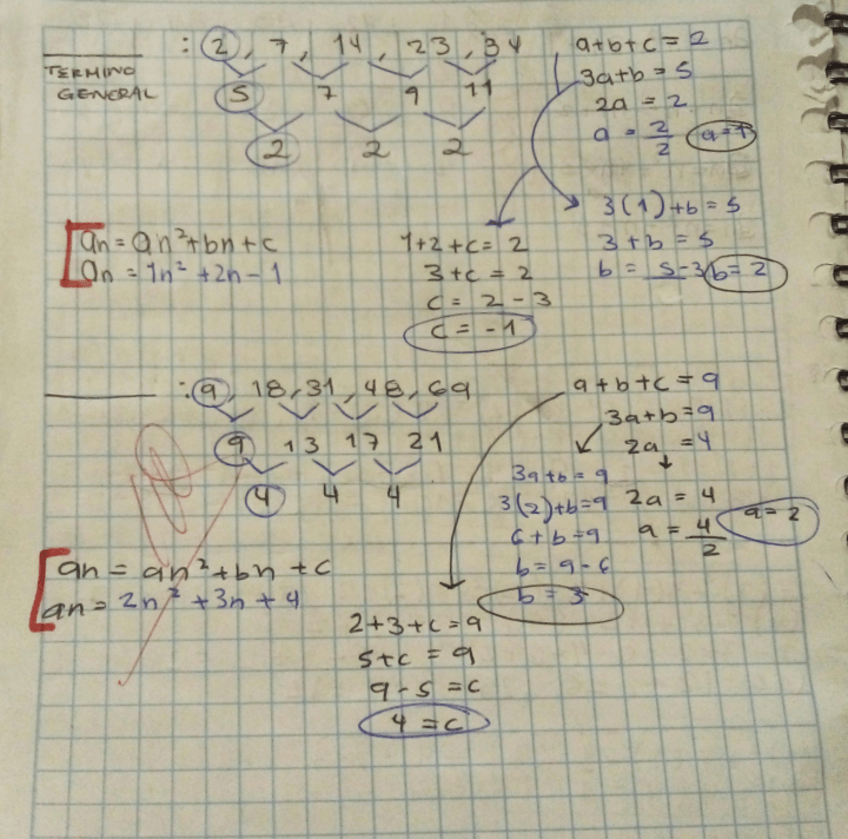 : 2, 7, 14, 23, 34
TERMINO
GENERAL
5 7 9 11
2 2 2
a+b+c = 2
3a+b = 5
2a = 2
a = 2/2 a=1
3(1)+b = 5
3+b = 5
b = 5-3 b=2
an = an²+bn+c
an = 1n²+2n-1
1+2+c = 2
3+c = 2
c = 2-3
c = -1
: 9, 18, 31, 48, 69
9 13 17 21
4 4 4
a+b+c = 9
3a+b=9
2a = 4
3a+b = 9
3(2)+b=9
6+b=9
b = 9-6
b = 3
2a = 4
a = 4/2 a=2
an = an²+bn+c
an = 2n²+3n+4
2+3+c=9
5+c = 9
9-5 = c
4 = c